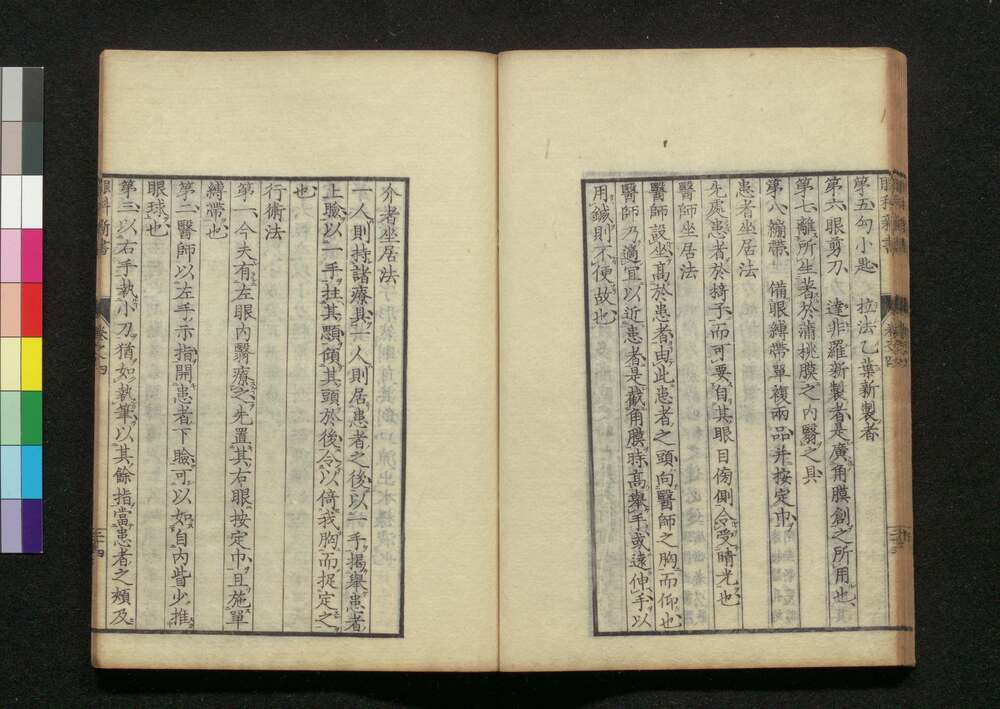 眼科新書 卷之四
第五勾小匙 拉法乙葉新製者
第六眼剪刀 達非羅新製者是廣角膜創之所用也
第七離所生著於蒲桃膜之內翳之具
第八繃帶 備眼縛帶單複兩品并按定巾
患者坐居法
先處患者於椅子而可要自其眼目傍側令受晴光也
醫師坐居法
醫師設坐高於患者由此患者之頭向醫師之胸而仰也
醫師乃適宜以近患者是截角膜時高舉手或遠伸手以
用鍼則不便故也
介者坐居法
一人則持諸療具一人則居患者之後以一手揭舉患者
上瞼以一手拄其顋傾其頭於後令以倚我胸而捉定之
也
行術法
第一今夫有左眼內翳療之先置其右眼按定巾且施單
縛帶也
第二醫師以左手示指開患者下瞼可以如自內眥少推
眼球也
第三以右手執小刀猶如執筆以其餘指當患者之頰及
眼科新書 卷之四 二十四